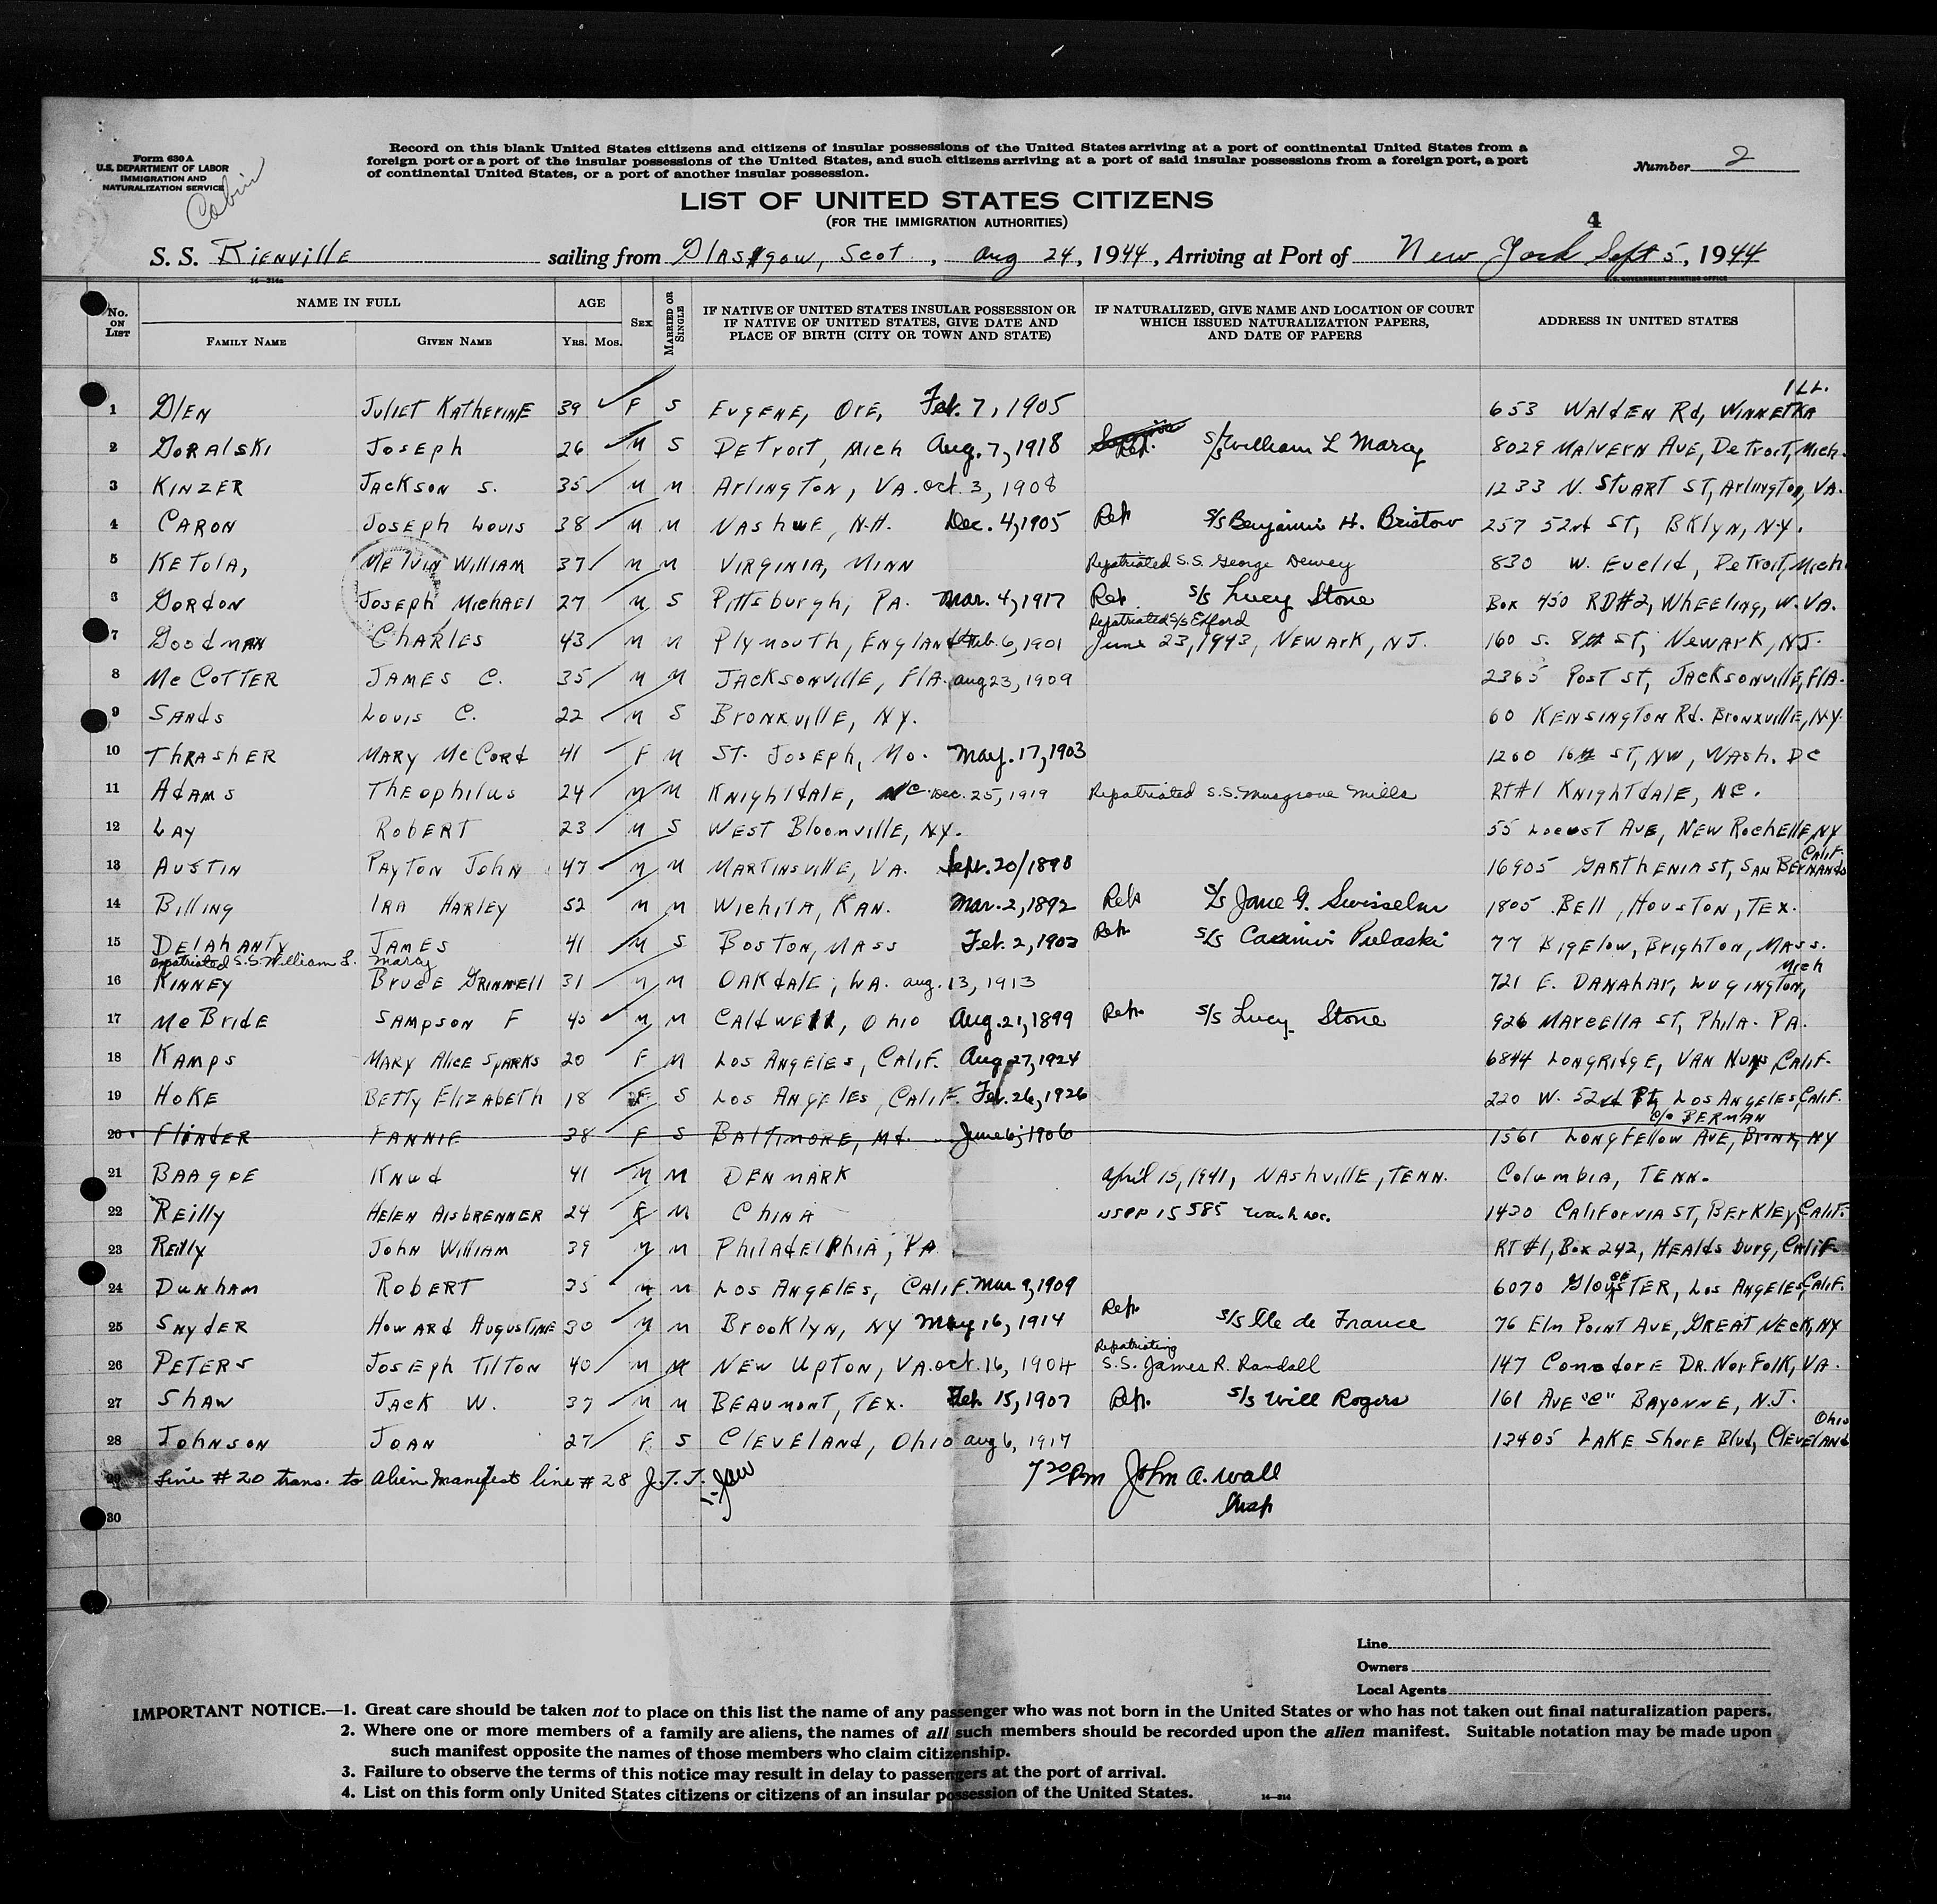 Form 630 A
U.S. DEPARTMENT OF LABOR
IMMIGRATION AND
NATURALIZATION SERVICE
Cabin
Record on this blank United States citizens and citizens of insular possessions of the United States arriving at a port of continental United States from a
foreign port or a port of the insular possessions of the United States, and such citizens arriving at a port of said insular possessions from a foreign port, a port
of continental United States, or a port of another insular possession.
Number 2
LIST OF UNITED STATES CITIZENS
(FOR THE IMMIGRATION AUTHORITIES)
4
S. S. Bienville sailing from Glasgow, Scot, Aug 24, 1944, Arriving at Port of New York Sept 5, 1944
14-314a
U.S. GOVERNMENT PRINTING OFFICE
No. ON LIST
NAME IN FULL
FAMILY NAME
GIVEN NAME
AGE
Yrs. Mos.
SEX
MARRIED OR SINGLE
IF NATIVE OF UNITED STATES INSULAR POSSESSION OR
IF NATIVE OF UNITED STATES, GIVE DATE AND
PLACE OF BIRTH (CITY OR TOWN AND STATE)
IF NATURALIZED, GIVE NAME AND LOCATION OF COURT
WHICH ISSUED NATURALIZATION PAPERS,
AND DATE OF PAPERS
ADDRESS IN UNITED STATES
1 Glen Juliet Katherine 39 F S Eugene, Ore, Feb. 7, 1905 653 Walden Rd, Winnetka ILL.
2 Goralski Joseph 26 M S Detroit, Mich Aug. 7, 1918 Rep. S/S William L Marcy 8029 Malvern Ave, Detroit, Mich.
3 Kinzer Jackson S. 35 M M Arlington, VA. Oct. 3, 1908 1233 N. Stuart St, Arlington, VA.
4 Caron Joseph Louis 38 M M Nashue, N.H. Dec. 4, 1905 Rep S/S Benjamin H. Bristow 257 52nd St, Bklyn, N.Y.
5 Ketola, Melvin William 37 M M Virginia, Minn Repatriated S.S. George Dewey 830 W. Euclid, Detroit, Mich
6 Gordon Joseph Michael 27 M S Pittsburgh, PA. Mar. 4, 1917 Rep S/S Lucy Stone Box 450 RD#2, Wheeling, W.VA.
Repatriated S/S Exford
7 Goodman Charles 43 M M Plymouth, England Feb. 6, 1901 June 23, 1943, Newark, NJ. 160 S. 8th St, Newark, NJ.
8 McCotter James C. 35 M M Jacksonville, Fla. Aug 23, 1909 2365 Post St, Jacksonville, Fla.
9 Sands Louis C. 22 M S Bronxville, NY. 60 Kensington Rd. Bronxville, N.Y.
10 Thrasher Mary McCord 41 F M St. Joseph, Mo. May. 17, 1903 1260 16th St, NW, Wash. DC
11 Adams Theophilus 24 M M Knightdale, NC Dec. 25, 1919 Repatriated S.S. Musgrove Mills RT#1 Knightdale, NC.
12 Lay Robert 23 M S West Bloonville, NY. 55 Locust Ave, New Rochelle, NY
13 Austin Payton John 47 M M Martinsville, VA. Sept. 20/1898 16905 Garthenia St, San Bernando Calif.
14 Billing Ira Harley 52 M M Wichita, Kan. Mar. 2, 1892 Rep S/S Jane G. Swisselm 1805 Bell, Houston, Tex.
15 Delahanty James 41 M S Boston, Mass Feb. 2, 1903 Rep. S/S Casimir Pulaski 77 Bigelow, Brighton, Mass.
Repatriated S.S. William L. Marcy
16 Kinney Bruce Grinnell 31 M M Oakdale, WA. Aug. 13, 1913 721 E. Danahar, Lugington, Mich
17 McBride Sampson F 45 M M Caldwell, Ohio Aug. 21, 1899 Rep. S/S Lucy Stone 926 Marcella St, Phila. PA.
18 Kamps Mary Alice Sparks 20 F M Los Angeles, Calif. Aug 27, 1924 6844 Longridge, Van Nuys, Calif.
19 Hoke Betty Elizabeth 18 F S Los Angeles, Calif. Feb. 26, 1926 220 W. 52nd Pl, Los Angeles, Calif.
c/o Berman
20 Flinder Fannie 38 F S Baltimore, Md. June 6, 1906 1561 Longfellow Ave, Bronx, NY
21 Baagoe Knud 41 M M Denmark April 15, 1941, Nashville, Tenn. Columbia, Tenn.
22 Reilly Helen Aisbrenner 24 F M China USPP 15585 Wash DC. 1430 California St, Berkley, Calif.
23 Reilly John William 39 M M Philadelphia, PA RT #1, Box 242, Healdsburg, Calif.
24 Dunham Robert 35 M M Los Angeles, Calif. Mar 9, 1909 6070 Glouster, Los Angeles, Calif.
25 Snyder Howard Augustine 30 M M Brooklyn, NY May 16, 1914 Rep. S/S Ile de France 76 Elm Point Ave, Great Neck, NY
Repatriating
26 Peters Joseph Tilton 40 M M New Upton, VA. Oct. 16, 1904 S.S. James R. Randall 147 Conodore Dr. Norfolk, VA.
27 Shaw Jack W. 37 M M Beaumont, Tex. Feb. 15, 1907 Rep. S/S Will Rogers 161 Ave "C" Bayonne, N.J.
28 Johnson Joan 27 F S Cleveland, Ohio Aug 6, 1917 12405 Lake Shore Blvd, Cleveland Ohio
29 Line #20 trans. to Alien Manifest line #28 J.T.J. 7 20 Pm John A. Wall
30 Insp
Line
Owners
Local Agents
IMPORTANT NOTICE.—1. Great care should be taken not to place on this list the name of any passenger who was not born in the United States or who has not taken out final naturalization papers.
2. Where one or more members of a family are aliens, the names of all such members should be recorded upon the alien manifest. Suitable notation may be made upon
such manifest opposite the names of those members who claim citizenship.
3. Failure to observe the terms of this notice may result in delay to passengers at the port of arrival.
4. List on this form only United States citizens or citizens of an insular possession of the United States.
14-314